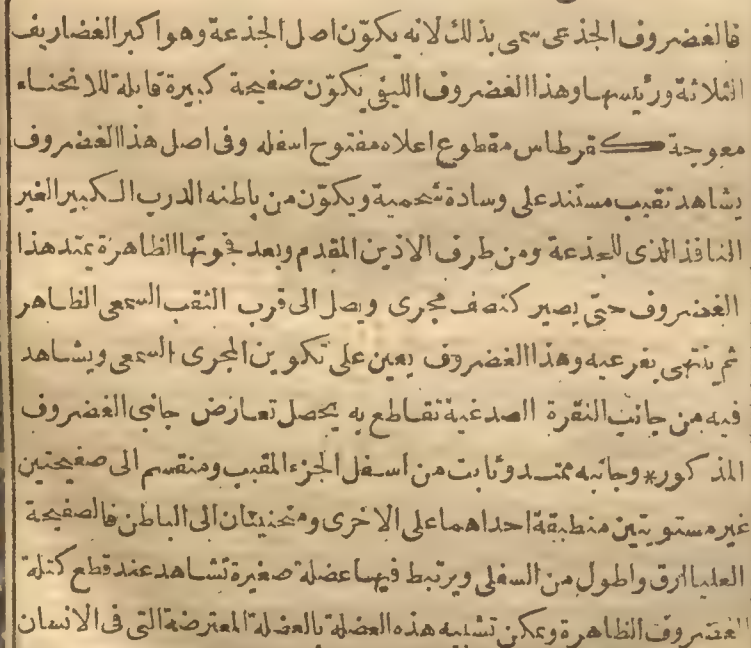 فالغضروف الجذعى سمى بذلك لانه يكوّن اصل الجذعة وهو اكبر الغضاريف
الثلاثة ورئيسها وهذا الغضروف الليفى يكوّن صفيحة كبيرة قابلة للانحناء
معوجة كقرطاس مقطوع اعلاه مفتوح اسفله وفى اصل هذا الغضروف
يشاهد تقبب مستند على وسادة شحمية ويكوّن من باطنه الدرب الكبير الغير
النافذ الذى للجذعة ومن طرف الاذين المقدم وبعد فجوتها الظاهرة يمتد هذا
الغضروف حتى يصير كنصف مجرى ويصل الى قرب الثقب السمعى الظاهر
ثم ينتهى بفرعيه وهذا الغضروف يعين على تكوين المجرى السمعى ويشاهد
فيه من جانب النقرة الصدغية تقاطع به يحصل تعارض جانبى الغضروف
المذكور* وجانبه ممتد وثابت من اسفل الجزء المقبب ومنقسم الى صفيحتين
غير مستويتين منطبقة احداهما على الاخرى ومنحنيتان الى الباطن فالصفيحة
العليا ارق واطول من السفلى ويرتبط فيها عضلة صغيرة تشاهد عند قطع كتلة
الغضروف الظاهرة ويمكن تشبيه هذه العضلة بالعضلة المعترضة التى فى الانسان